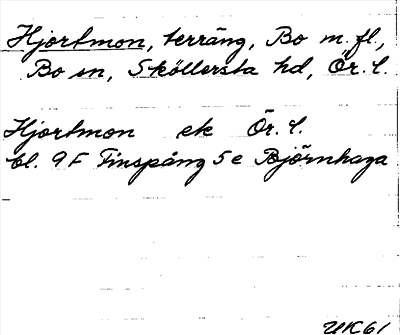 Hjortmon, terräng, Bo m. fl.,
Bo sn, Sköllersta hd, Ör. l.
Hjortmon ek Ör. l.
bl. 9F Finspång 5e Björnhaga
UK61